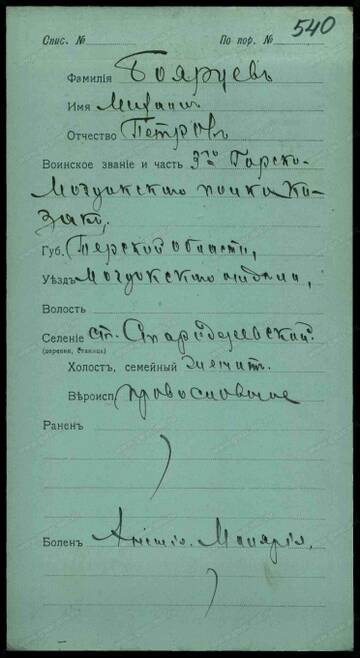 540
Спис. № По пор. №
Фамилія Бояруевъ
Имя Михаилъ
Отчество Петровъ
Воинское званіе и часть 3го Горско-
Моздокскаго полка Ка-
закъ,
Губ. Терской области,
Уѣздъ Моздокскаго отдѣла,
Волость
Селеніе ст.
(деревня, станица)
Холостъ, семейный женат.
Вѣроисп. православное
Раненъ
Боленъ Анемія. Малярія.